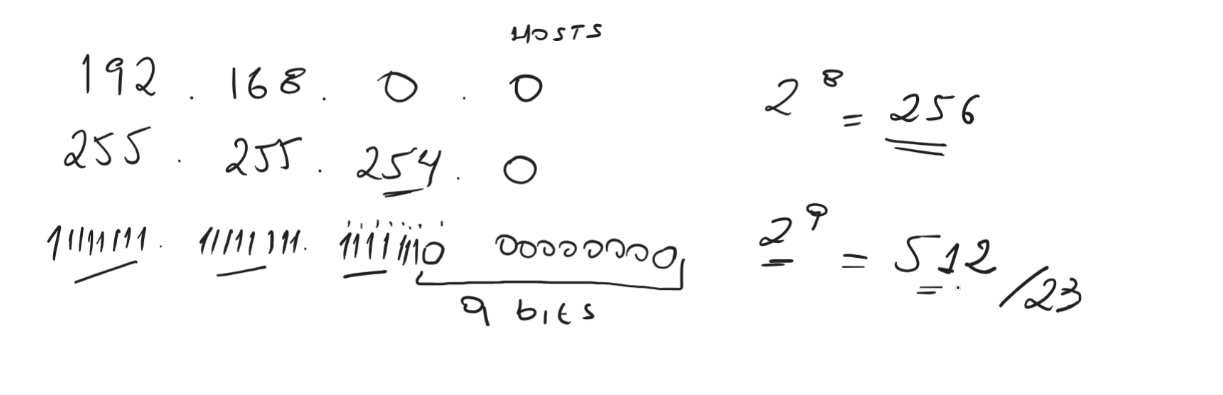 HOSTS
192 . 168 . 0 . 0
255 . 255 . 254 . 0
11111111 . 11111111 . 11111110 00000000
9 bits
2^8 = 256
2^9 = 512 /23